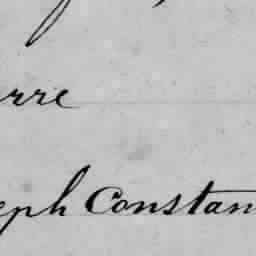 rre
eph Constan